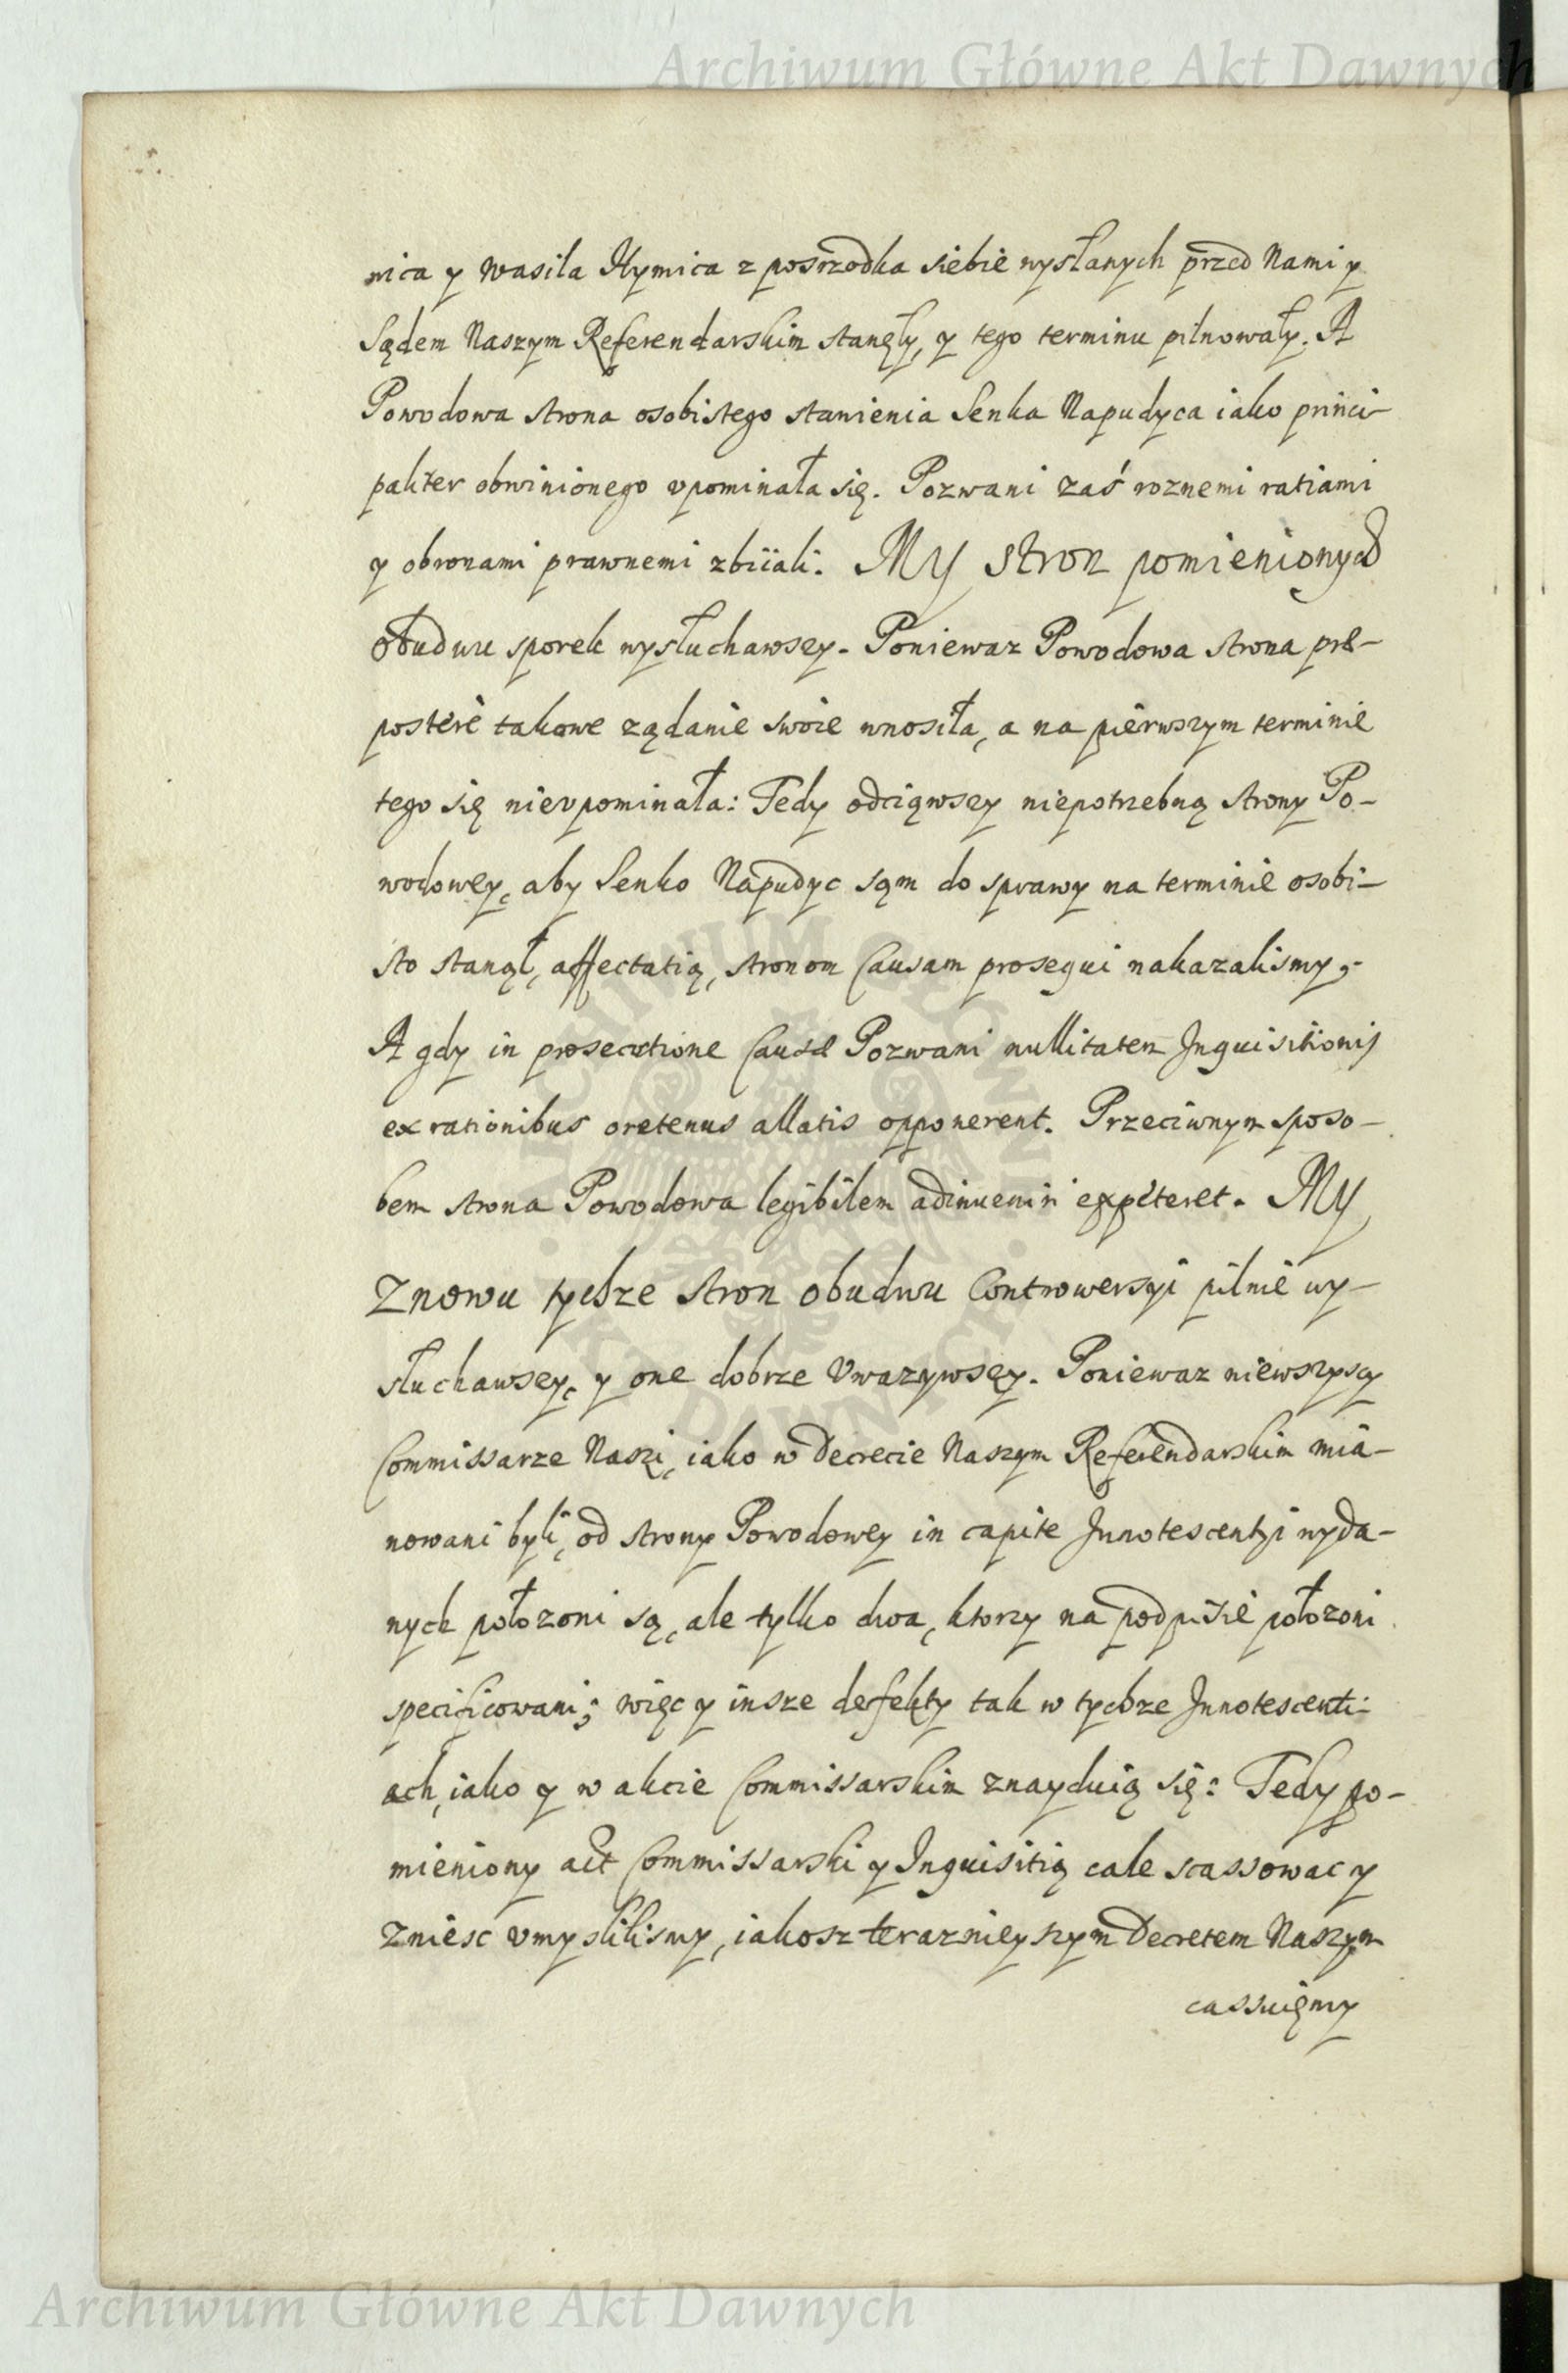 Archiwum Główne Akt Dawnych
nica y Wasila Ilymica z posrzodka siebie wysłanych przed Nami y
Sądem Naszym Referendarskim stanęły, y tego terminu pilnowały. A
Powodowa strona osobistego stawienia Senka Napudyca iako princi-
paliter obwinionego vpominała się. Pozwani zaś roznemi ratiami
y obronami prawnemi zbiiali. My stron pomienionych
obudwu sporek wysłuchawszy. Poniewaz Powodowa strona præ-
posterè takowe ządanie swoie wnosiła, a na pierwszym terminie
tego się nievpominała: Tedy odciąwszy niepotrzebną strony Po-
wodowey, aby Senko Napudyc sąm do sprawy na terminie osobi-
sto stanął, affectatią, stronom Causam prosequi nakazalismy,
A gdy in prosecutione Causæ Pozwani nullitatem Inquisitionis
ex rationibus oretenus allatis opponerent. Przeciwnym sposo-
bem strona Powodowa legibilem adinueniri expeteret. My
Znowu tychze stron obudwu Controwersyi pilnie wy-
słuchawszy, y one dobrze Vwazywszy. Poniewaz niewszyscy
Commissarze Naszi, iako w Decrecie Naszym Referendarskim mia-
nowani byli, od strony Powodowey in capite Innotescentyi wyda-
nych połozoni są, ale tylko dwa, ktorzy na podpisie połozoni
specificowani; więc y insze defekty tak w tychze Innotescenti-
ach, iako y w akcie Commissarskim znayduią się: Tedy po-
mieniony act Commissarski y Inquisitią cale scassowac y
Zniesc vmyslilismy, iakosz teraznieyszym Decretem Naszym
cassuięmy
Archiwum Główne Akt Dawnych